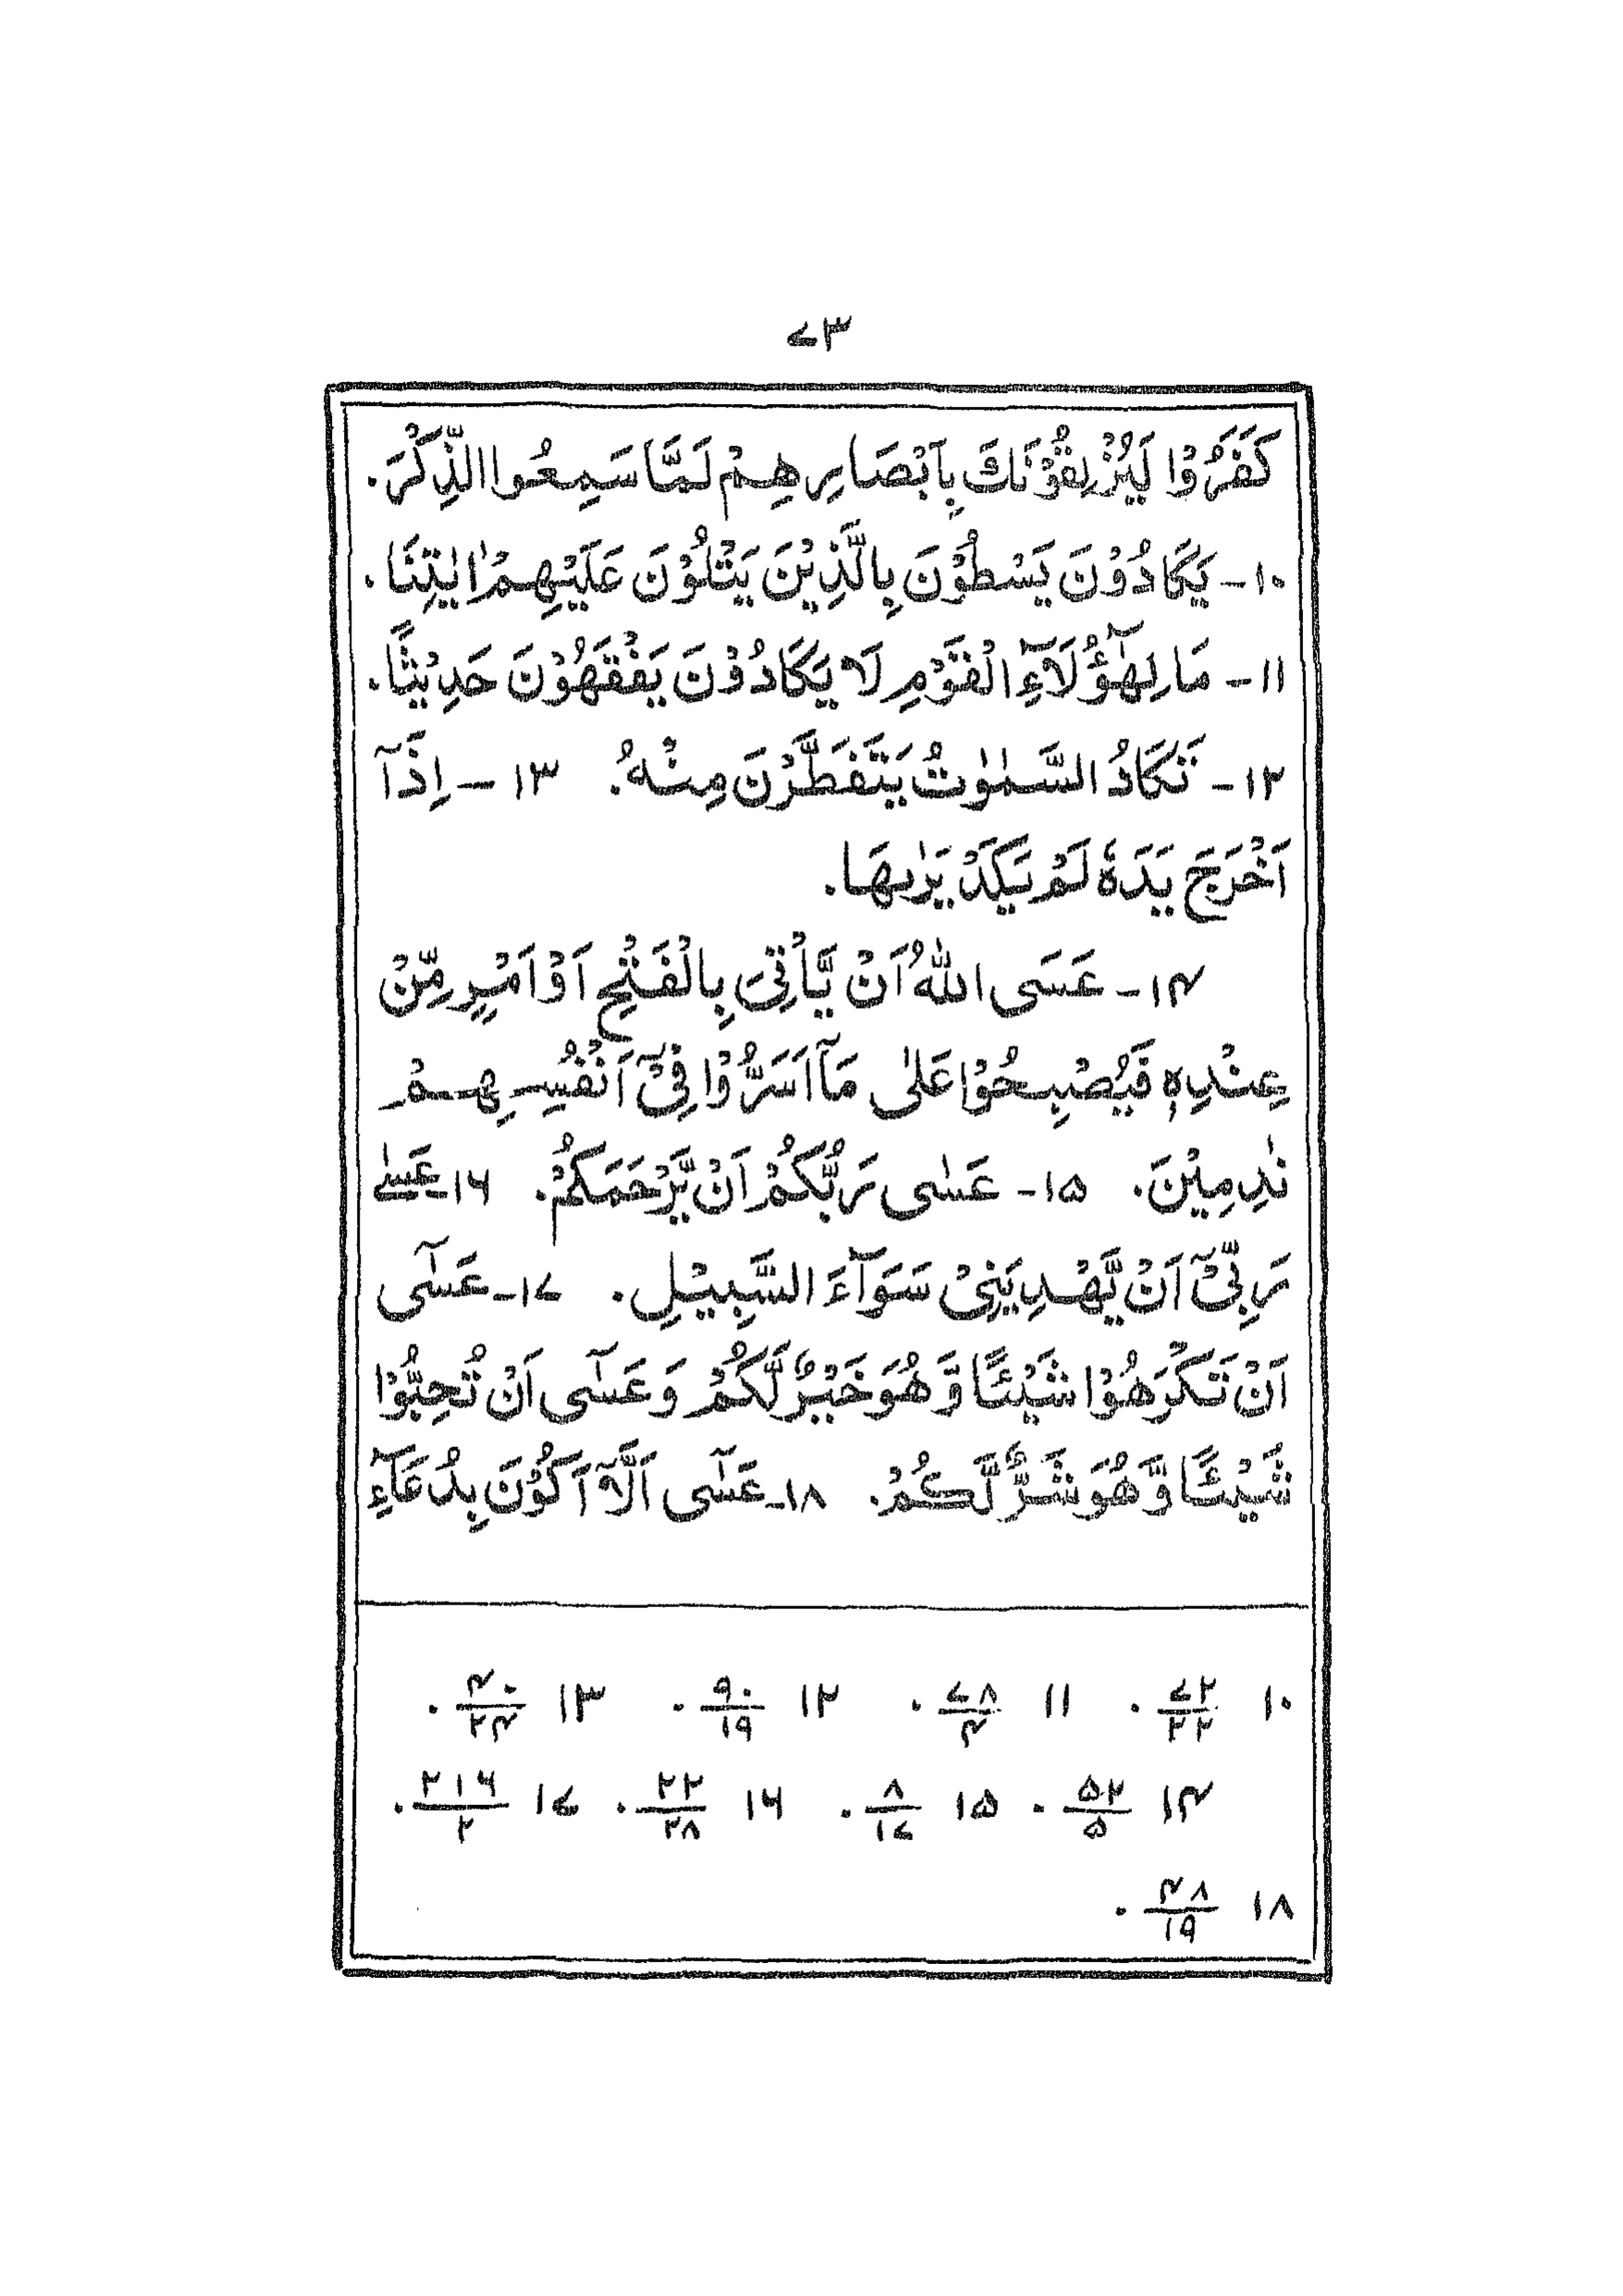 ۷۳
كَفَرُوْا لَيُزْلِقُوْنَكَ بِاَبْصَارِهِمْ لَمَّا سَمِعُوا الذِّكْرَ۔
۱۰- يَكَادُوْنَ يَسْطُوْنَ بِالَّذِيْنَ يَتْلُوْنَ عَلَيْهِمْ اٰيٰتِنَا۔
۱۱- مَا لِهٰٓؤُلَآءِ الْقَوْمِ لَا يَكَادُوْنَ يَفْقَهُوْنَ حَدِيْثًا۔
۱۲- تَكَادُ السَّمٰوٰتُ يَتَفَطَّرْنَ مِنْهُ۔ ۱۳- اِذَآ
اَخْرَجَ يَدَهٗ لَمْ يَكَدْ يَرٰىهَا۔
۱۴- عَسَى اللّٰهُ اَنْ يَّاْتِىَ بِالْفَتْحِ اَوْ اَمْرٍ مِّنْ
عِنْدِهٖ فَيُصْبِحُوْا عَلٰى مَآ اَسَرُّوْا فِىْٓ اَنْفُسِهِمْ
نٰدِمِيْنَ۔ ۱۵- عَسٰى رَبُّكُمْ اَنْ يَّرْحَمَكُمْ۔ ۱۶- عَسٰى
رَبِّىْٓ اَنْ يَّهْدِيَنِىْ سَوَآءَ السَّبِيْلِ۔ ۱۷- عَسٰٓى
اَنْ تَكْرَهُوْا شَيْئًا وَّ هُوَ خَيْرٌ لَّكُمْ وَ عَسٰٓى اَنْ تُحِبُّوْا
شَيْئًا وَّ هُوَ شَرٌّ لَّكُمْ۔ ۱۸- عَسٰٓى اَلَّآ اَكُوْنَ بِدُعَآءِ
۱۰ ۷۲/۲۲۔ ۱۱ ۷۸/۴۔ ۱۲ ۹۰/۱۹۔ ۱۳ ۴۰/۲۴۔
۱۴ ۵۲/۵۔ ۱۵ ۸/۱۷۔ ۱۶ ۲۲/۲۸۔ ۱۷ ۲۱۶/۲۔
۱۸ ۴۸/۱۹۔